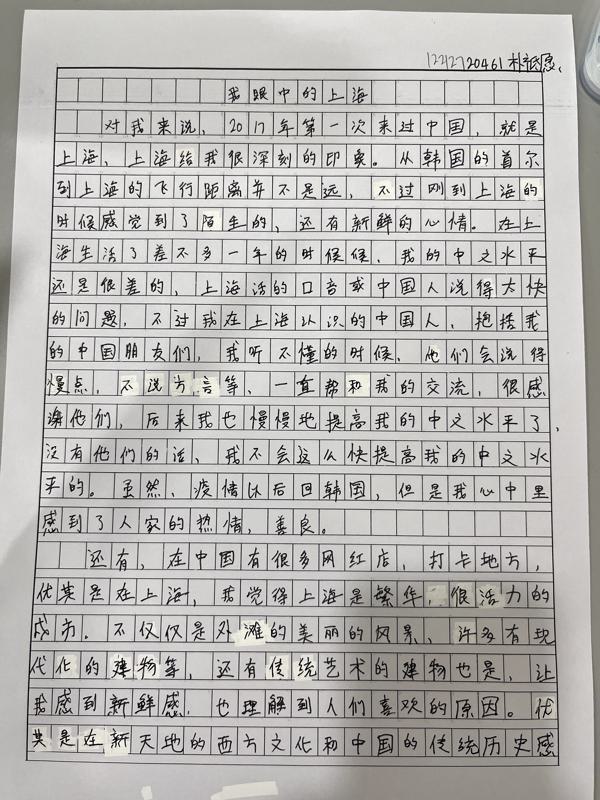 12212720461 朴祗愚、
我眼中的上海
对我来说，2017年第一次来过中国，就是
上海，上海给我很深刻的印象。从韩国的首尔
到上海的飞行距离并不是远，不过刚到上海的
时候感觉到了陌生的，还有新鲜的心情。在上
海生活了差不多一年的时候候，我的中文水平
还是很差的，上海话的口音或中国人说得太快
的问题，不过我在上海认识的中国人，抱括我
的中国朋友们，我听不懂的时候，他们会说得
慢点，不说方言等，一直帮和我的交流，很感
谢他们，后来我也慢慢地提高我的中文水平了，
没有他们的话，我不会这么快提高我的中文水
平的。虽然，疫情以后回韩国，但是我心中里
感到了人家的热情，善良。
还有，在中国有很多网红店，打卡地方，
优其是在上海，我觉得上海是繁华，很活力的
城市。不仅仅是外滩的美丽的风景，许多有现
代化的建物等，还有传统艺术的建物也是，让
我感到新鲜感，也理解到人们喜欢的原因。优
其是在新天地的西方文化和中国的传统历史感